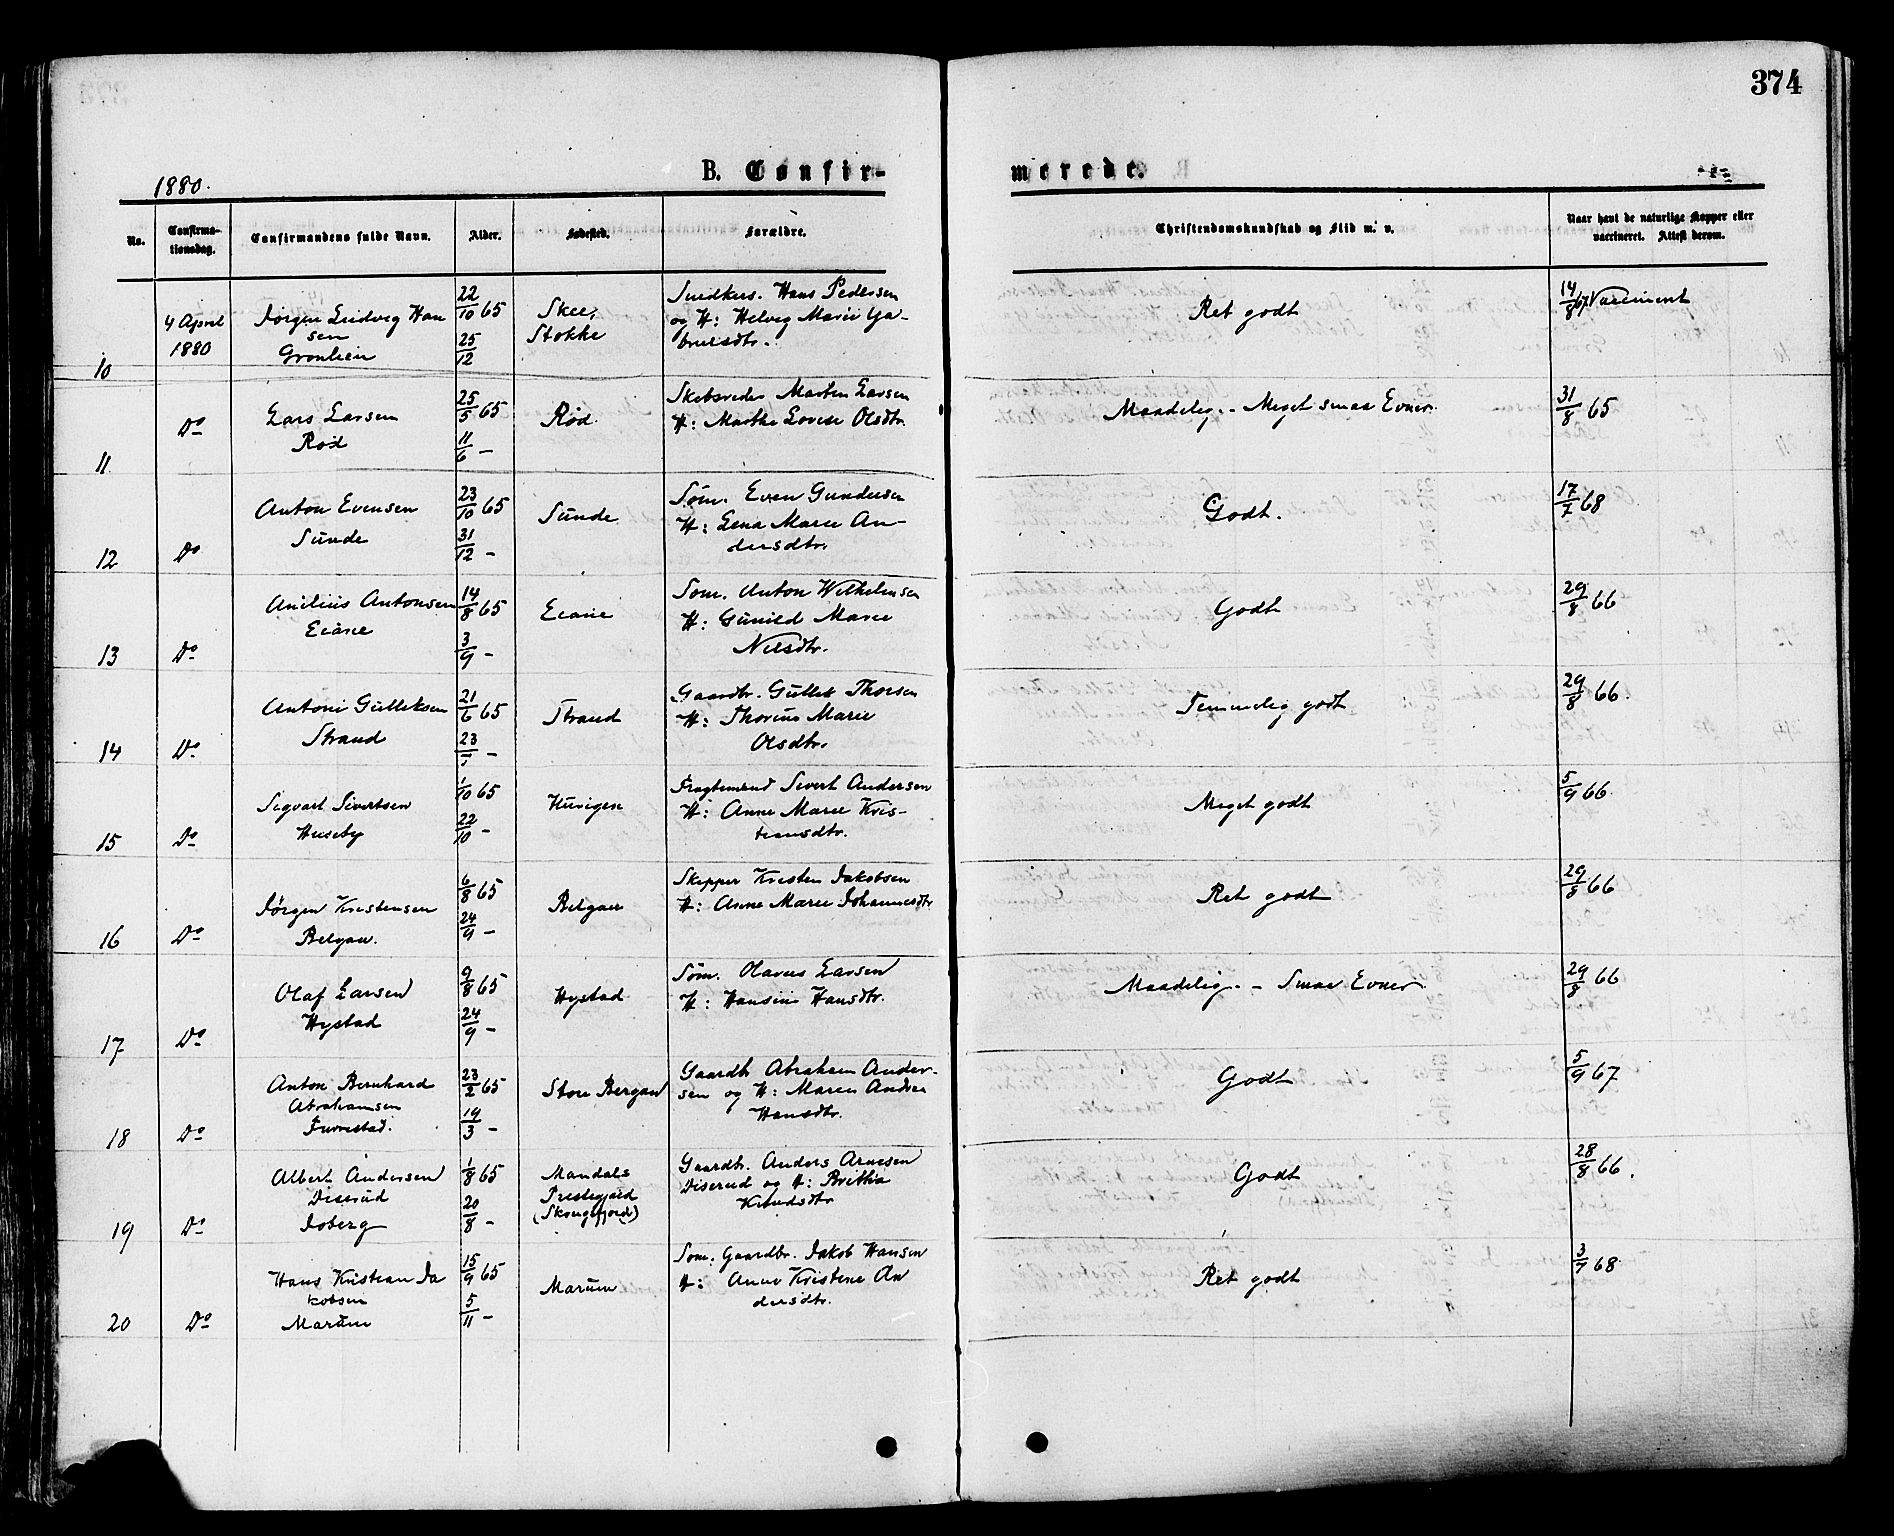 374
1880.
B. Confir-
merede.
No.
Confirma-
tionsdag.
Confirmandens fulde Navn.
Alder.
Fødested.
Forældre.
Christendomskundskab og Flid m. v.
Naar havt de naturlige Kopper eller
vaccineret. Attest derom.
10
4 April
1880
Jørgen Ludvig Han
sen
Grønlien
22/10 65
25/12
Skee,
Stokke
Snedkers. Hans Pedersen
og H: Helvig Marie Ga-
brielsdtr.
Ret godt
14/8 67 Vaccineret
11
Do
Lars Larsen
Rød
25/5 65
11/6 –
Rød
Marten Larsen
H: Marthe Lovise Olsdtr.
Maadelig. – Meget smaa Evner.
31/8 65
12
Do
Anton Evensen
Sunde
23/10 65
31/12 –
Sunde
Søm. Even Gundersen
H: Lena Marie An-
dersdtr.
Godt.
17/7 68
13
Do
Antonsen
14/8 65
3/9 –
Søm. Anton Wilhelmsen
H: Gunild Marie
Nilsdtr.
Godt
29/8 66
14
Do
Antoni Gulleksen
Strand
21/6 65
23/7 –
Strand
Gaardbr. Gullek Thorsen
H: Thorine Marie
Olsdtr.
Temmelig godt
29/8 66.
15
Do
Sigvart Sivertsen
Huseby
1/10 65
22/10 –
Fragtemand Sivert Andersen
H: Anne Marie Kris-
tiansdtr.
Meget godt
5/9 66.
16
Do
Jørgen Kristensen
Belgau.
6/8 65
24/9 –
Belgau
Skipper Kristen Jakobsen
H: Anne Marie Johannesdtr.
Ret godt
29/8 66
17
Do
Olaf Larsen
Hystad
9/8 65
24/9 –
Hystad
Søm. Olaves Larsen
H: Hansine Hansdtr.
Maadelig. – Smaa Evner.
29/8 66
18
Do
Anton Bernhard
Abrahamsen
Furrestad.
23/2 65
19/3 –
Store Bergan
Gaardb. Abraham Ander-
sen og H: Maren Andrea
Hansdtr.
Godt
5/9 67
19
Do
Albert Andersen
Diserud
Joberg
1/8 65
20/8 –
Mandals
Prestegjeld
Gaardb. Anders Arnesen
Diserud og H: Britha
Knudsdtr
Godt
28/8 66.
20
Do
Hans Kristian Ja
kobsen
Marum
15/9 65
5/11 –
Marum
Søm. Gaardbr. Jakob Hansen
H: Anne Kristine An
dersdtr.
Ret godt
3/7 68.